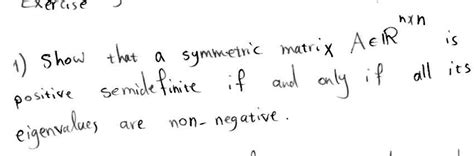 Exercise
1) Show that a symmetric matrix A∈ℝⁿˣⁿ is
positive semidefinite if and only if all its
eigenvalues are non-negative.